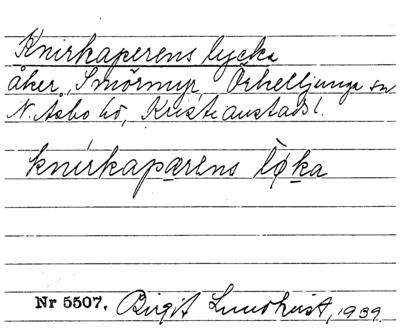 Knirkaperens lycka
åker, Smörmyr, Örkelljunga sn
N. Åsbo hd, Kristianstads l.
knirkapærens løka
Nr 5507. Birgit Lundkvist, 1939